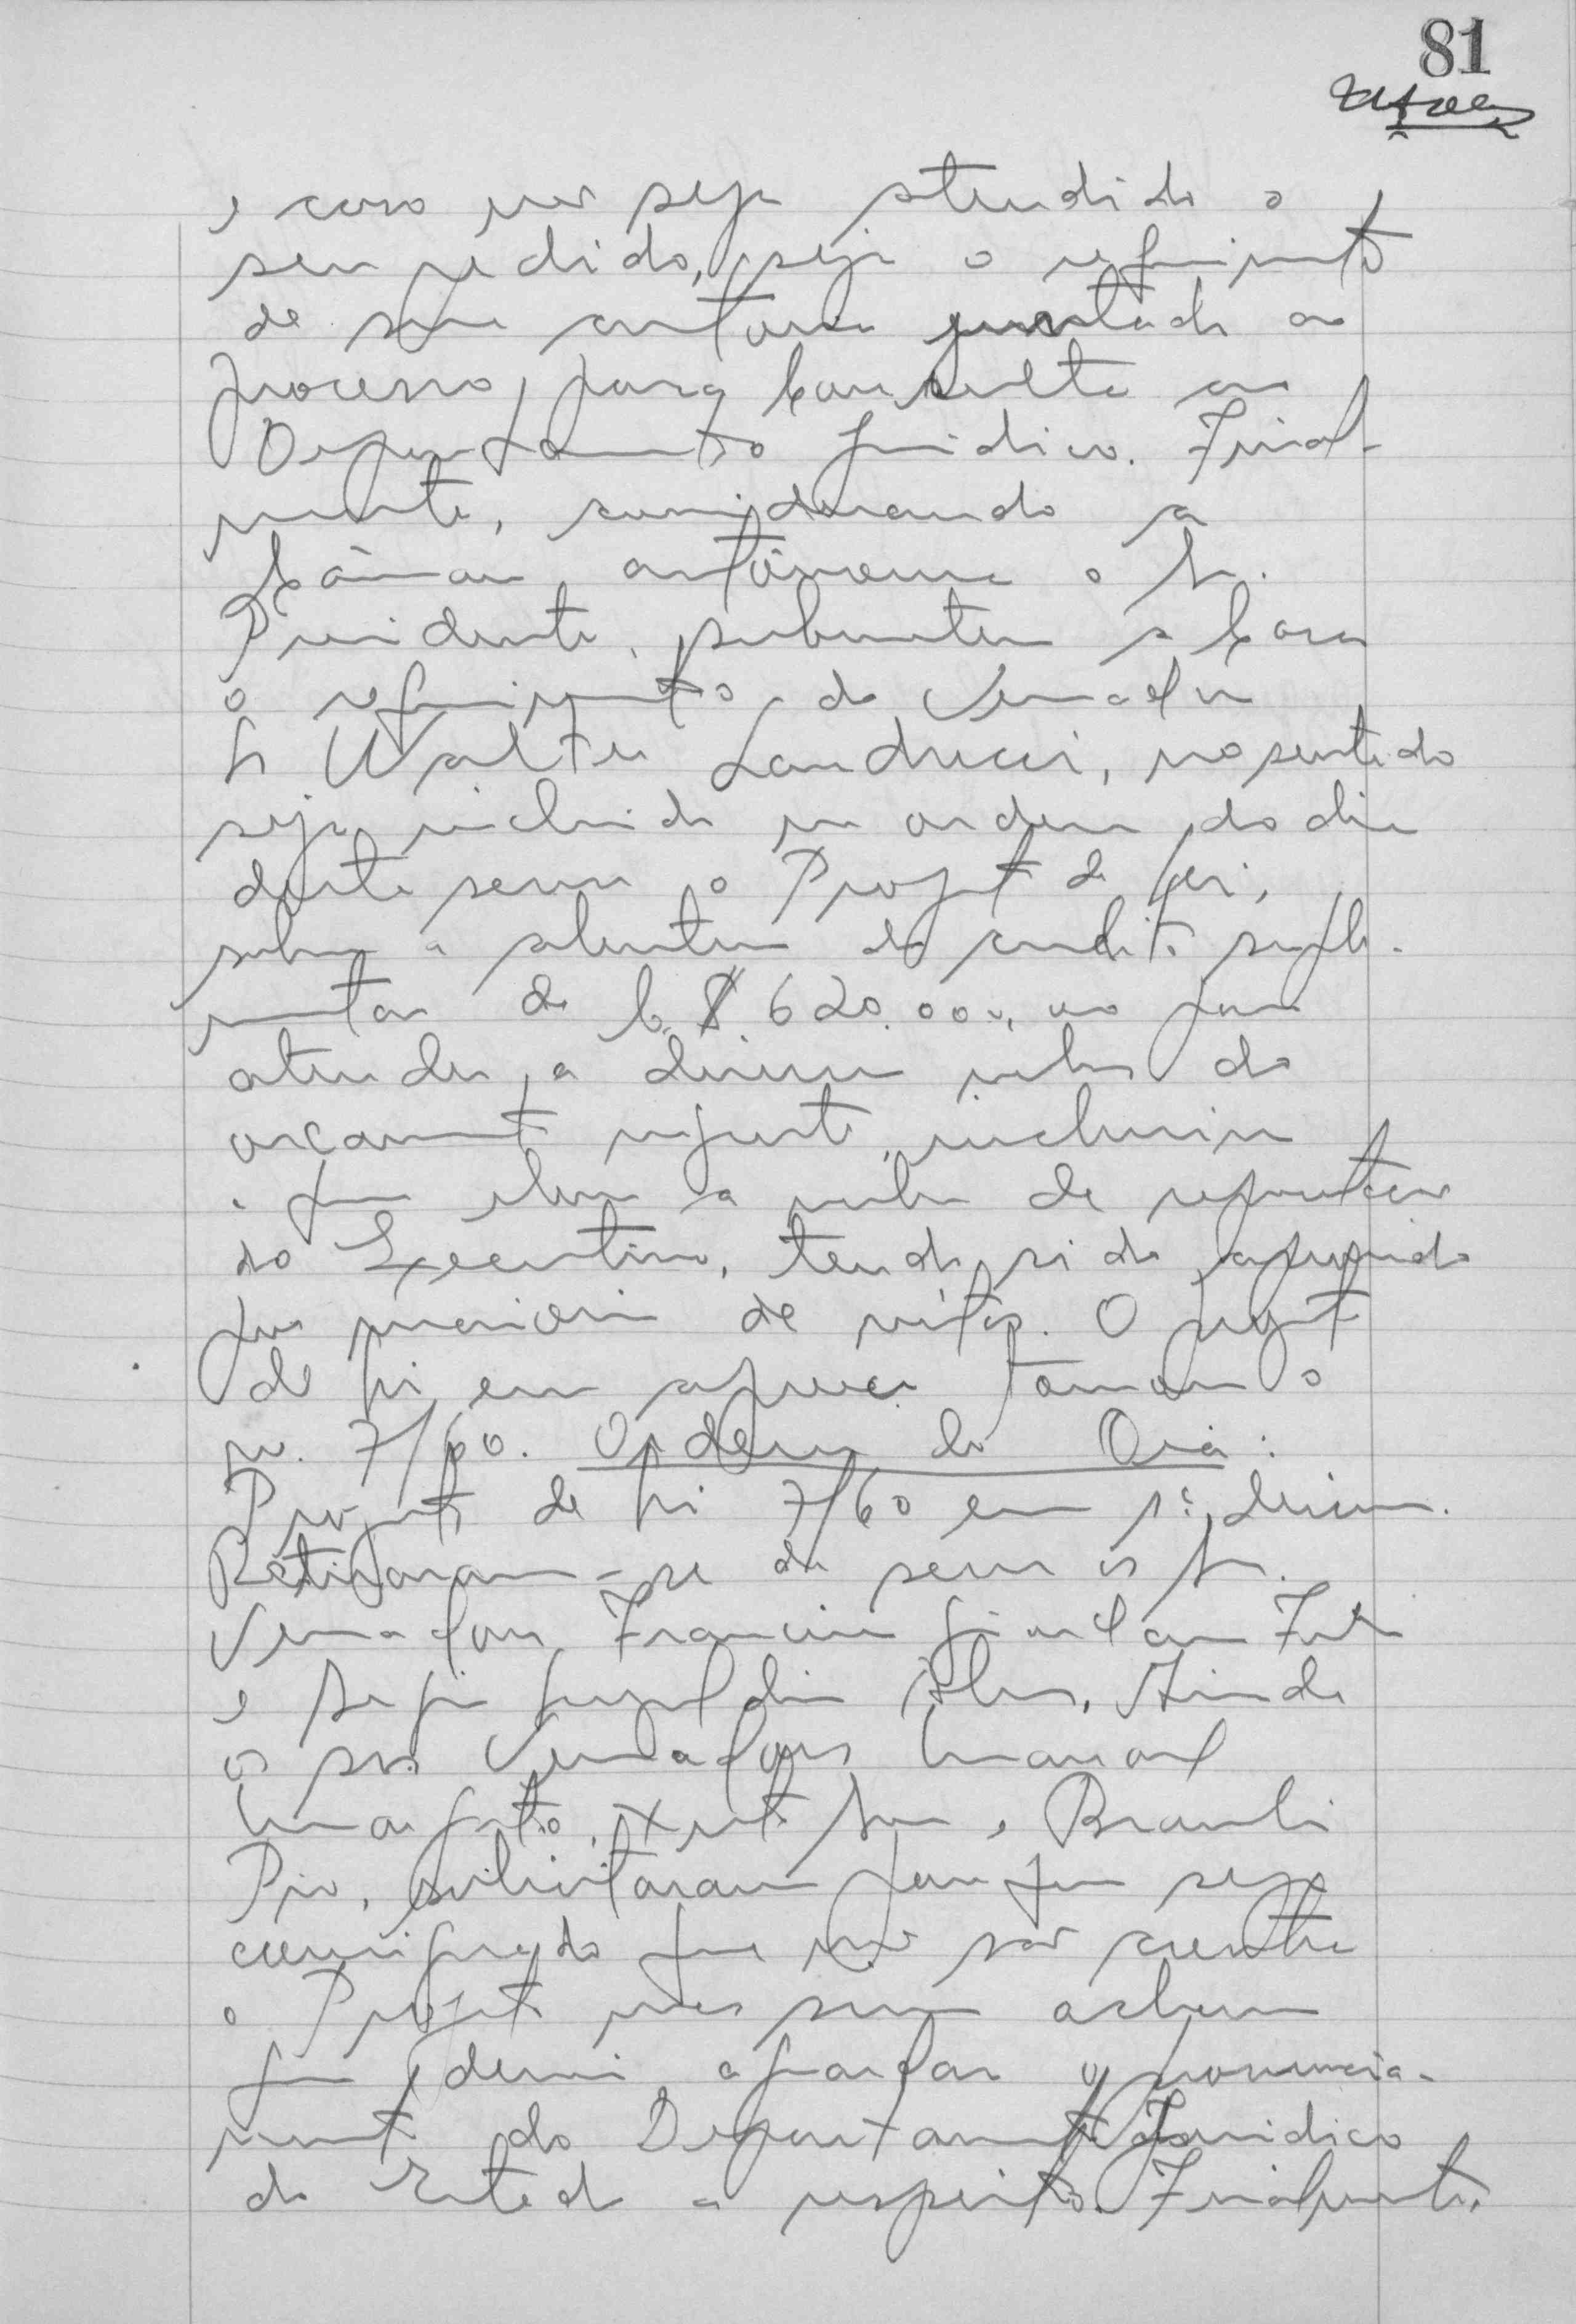 81
e caso não seja atendido o
seu pedido, seja o requerimento
de sua autoria juntado ao
processo, para consulta ao
Departamento Juridico. Final-
mente, considerando a
Câmara autônoma o Sr.
Presidente, submeteu a Casa
o requerimento do Vereador
Sr Walter Landucci, no sentido
seja incluido na ordem do dia
desta sessão o Projeto de lei,
sobre a abertura do credito suple-
mentar de Cr$ 620.000,00 para
atender a diversas verbas do
orçamento vigente, inclusive
a que eleva a verba de representação
do Executivo, tendo sido aprovado
por maioria de votos. O projeto
de lei em apreço tomou o
no. 7/60. Ordem do Dia:
Projeto de lei 7/60 em 1ª discussão.
Retiraram-se da sessão os Sr.
Vereadores Francisco
e Alves. Ainda
os srs. Vereadores Manoel
e Braulio
Pio, solicitaram para que seja
consignado que não são contra
o Projeto mas sim acham
que devia aguardar o pronuncia-
mento do Departamento Juridico
do Estado a respeito. Finalmente,